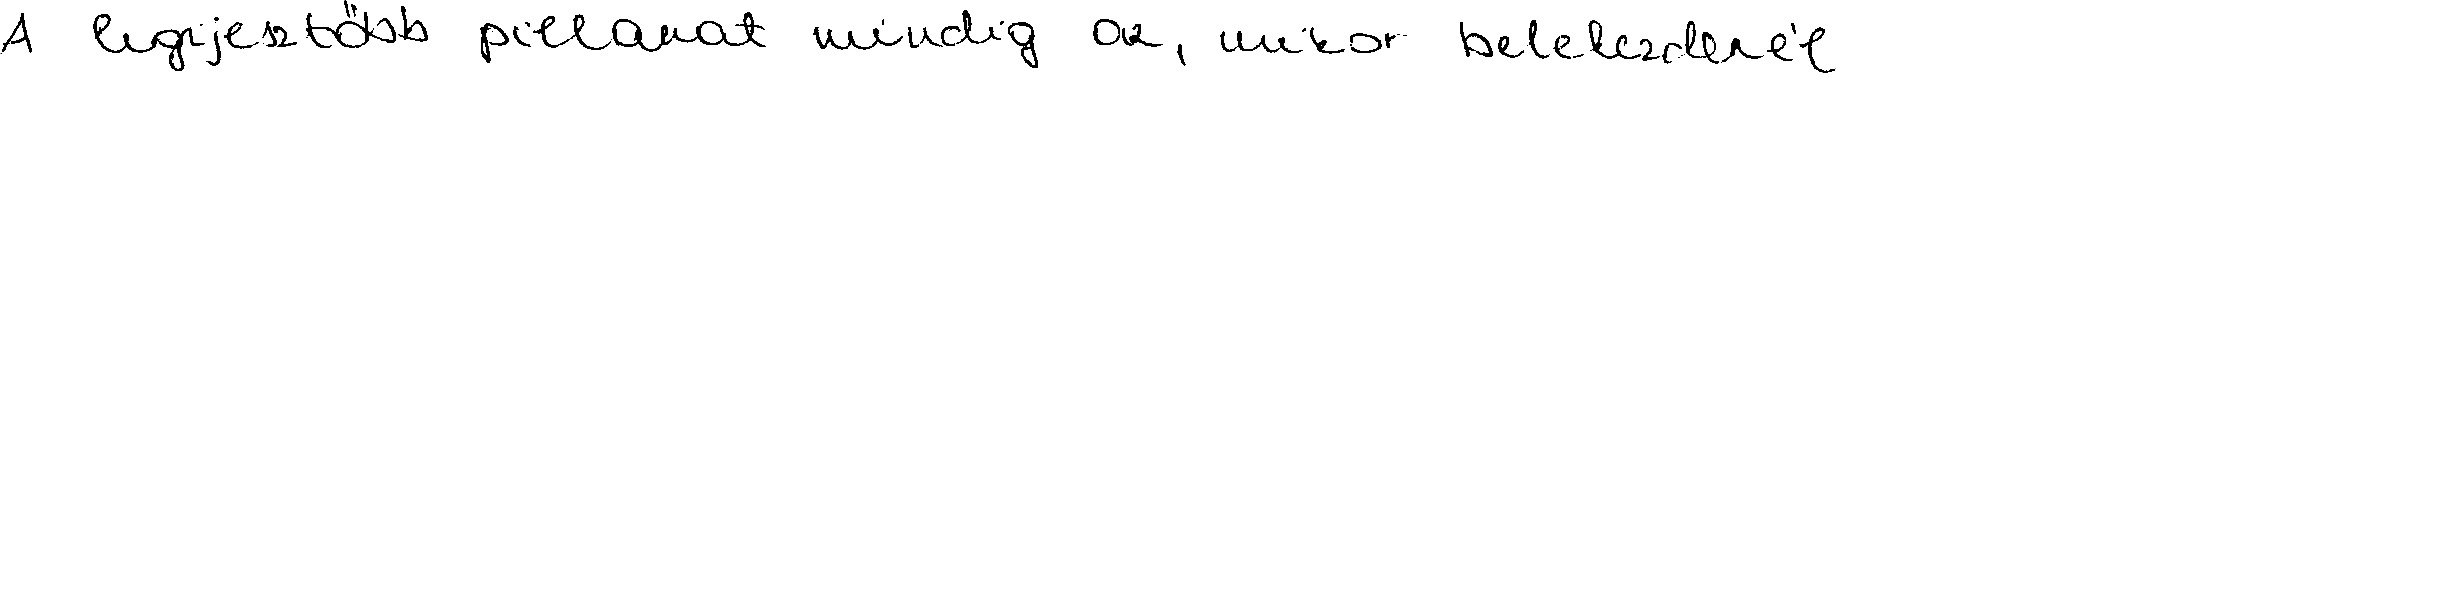 A legijesztőbb pillanat mindig az, mikor belekezdenél